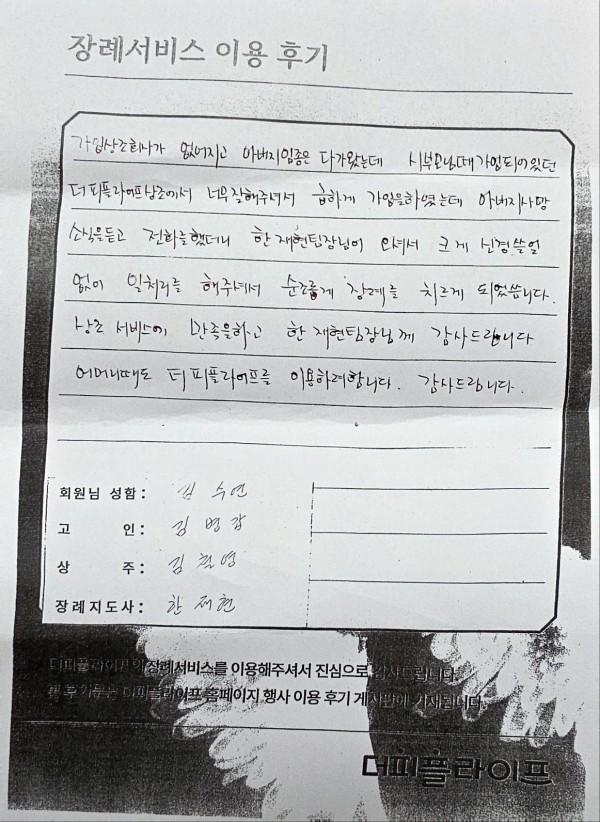 장례서비스 이용 후기
가입상조회사가 없어지고 아버지임종은 다가왔는데 시부모님때가입되어있던
더피플라이프상조에서 너무잘해주셔서 급하게 가입을하였는데 아버지사망
소식을듣고 전화를했더니 한재현팀장님이 오셔서 크게 신경쓸일
없이 일처리를 해주셔서 순조롭게 장례를 치르게 되었습니다.
상조 서비스에 만족을하고 한재현팀장님께 감사드립니다
어머니때도 더피플라이프를 이용하려합니다. 감사드립니다.
회원님 성함: 김수연
고 인: 김병갑
상 주: 김
장례지도사: 한재현
더피플라이프의 장례서비스를 이용해주셔서 진심으로 감사드립니다.
본 후기문은 더피플라이프 홈페이지 행사 이용 후기 게시판에 기재됩니다.
더피플라이프